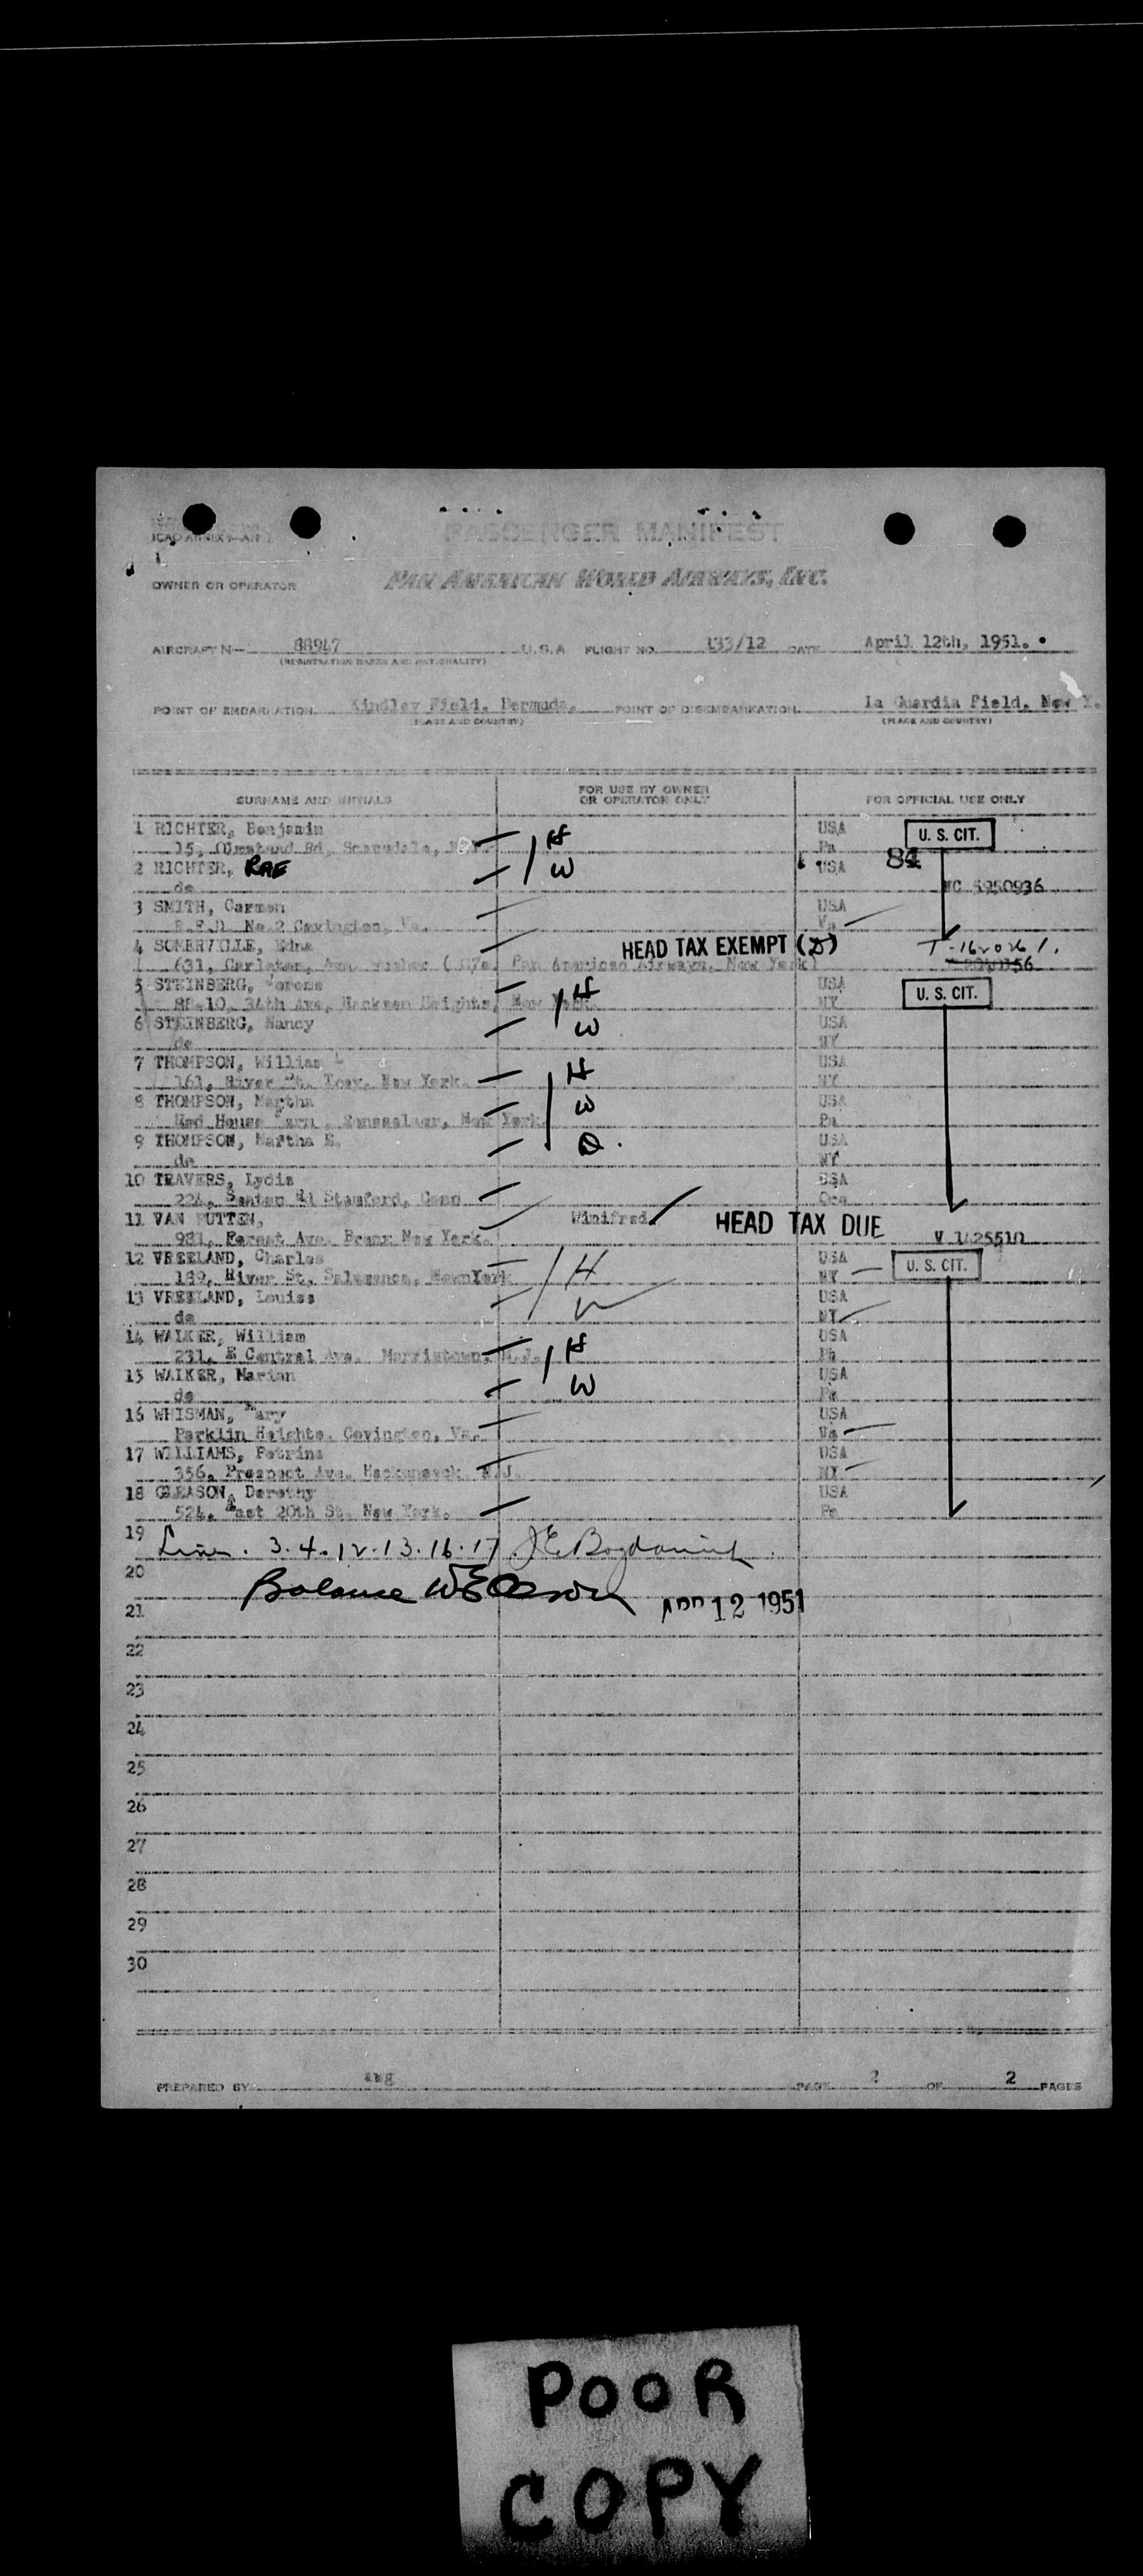 ICAO ANNEX 9-A/F
PASSENGER MANIFEST
OWNER OR OPERATOR PAN AMERICAN WORLD AIRWAYS, INC.
AIRCRAFT N— 88947 U.S.A FLIGHT NO. 133/12 DATE April 12th, 1951.
(REGISTRATION MARKS AND NATIONALITY)
POINT OF EMBARKATION Kindley Field, Bermuda. POINT OF DISEMBARKATION La Guardia Field, New Y.
(PLACE AND COUNTRY) (PLACE AND COUNTRY)
SURNAME AND INITIALS FOR USE BY OWNER OR OPERATOR ONLY FOR OFFICIAL USE ONLY
1 RICHTER, Benjamin H USA U. S. CIT.
15, Olmstead Rd, Scarsdale, Pa 84
2 RICHTER, RAE W USA
do 5950936
3 SMITH, Carmen USA
R.F.D No.2 Covington, Va. Va
4 SOMERVILLE, Edna HEAD TAX EXEMPT
631, Carleton, Ave. (C/o. Pan American Airways, New York)
5 STEINBERG, H USA U. S. CIT.
88-10, 34th Ave, Heights, New York. NY
6 STEINBERG, Nancy W USA
do NY
7 THOMPSON, William H USA
161, River St. Troy, New York. NY
8 THOMPSON, Martha W USA
Red House Farm, Rensselaer, New York. Pa
9 THOMPSON, Martha E. D. USA
do NY
10 TRAVERS, Lydia USA
224, Stamford, Conn
11 VAN PUTTEN, Winifred HEAD TAX DUE
981, Forest Ave. Bronx New York. V 1425510
12 VREELAND, Charles H USA U. S. CIT.
189, River St, Salamanca, New York NY
13 VREELAND, Louise W USA
do NY
14 WALKER, William H USA
231, E Central Ave. Morristown, N.J. Pa
15 WALKER, Marian W USA
do Pa
16 WHISMAN, Mary USA
Parklin Heights, Covington, Va. Va
17 WILLIAMS, Petrina USA
356, Prospect Ave. Hackensack N.J. NY
18 GLEASON, Dorothy USA
524, East 20th St. New York. Pa
19 Lines. 3.4.12.13.16.17
20 Balance
21 APR 12 1951
22
23
24
25
26
27
28
29
30
PREPARED BY PAGE 2 OF 2 PAGES
POOR
COPY